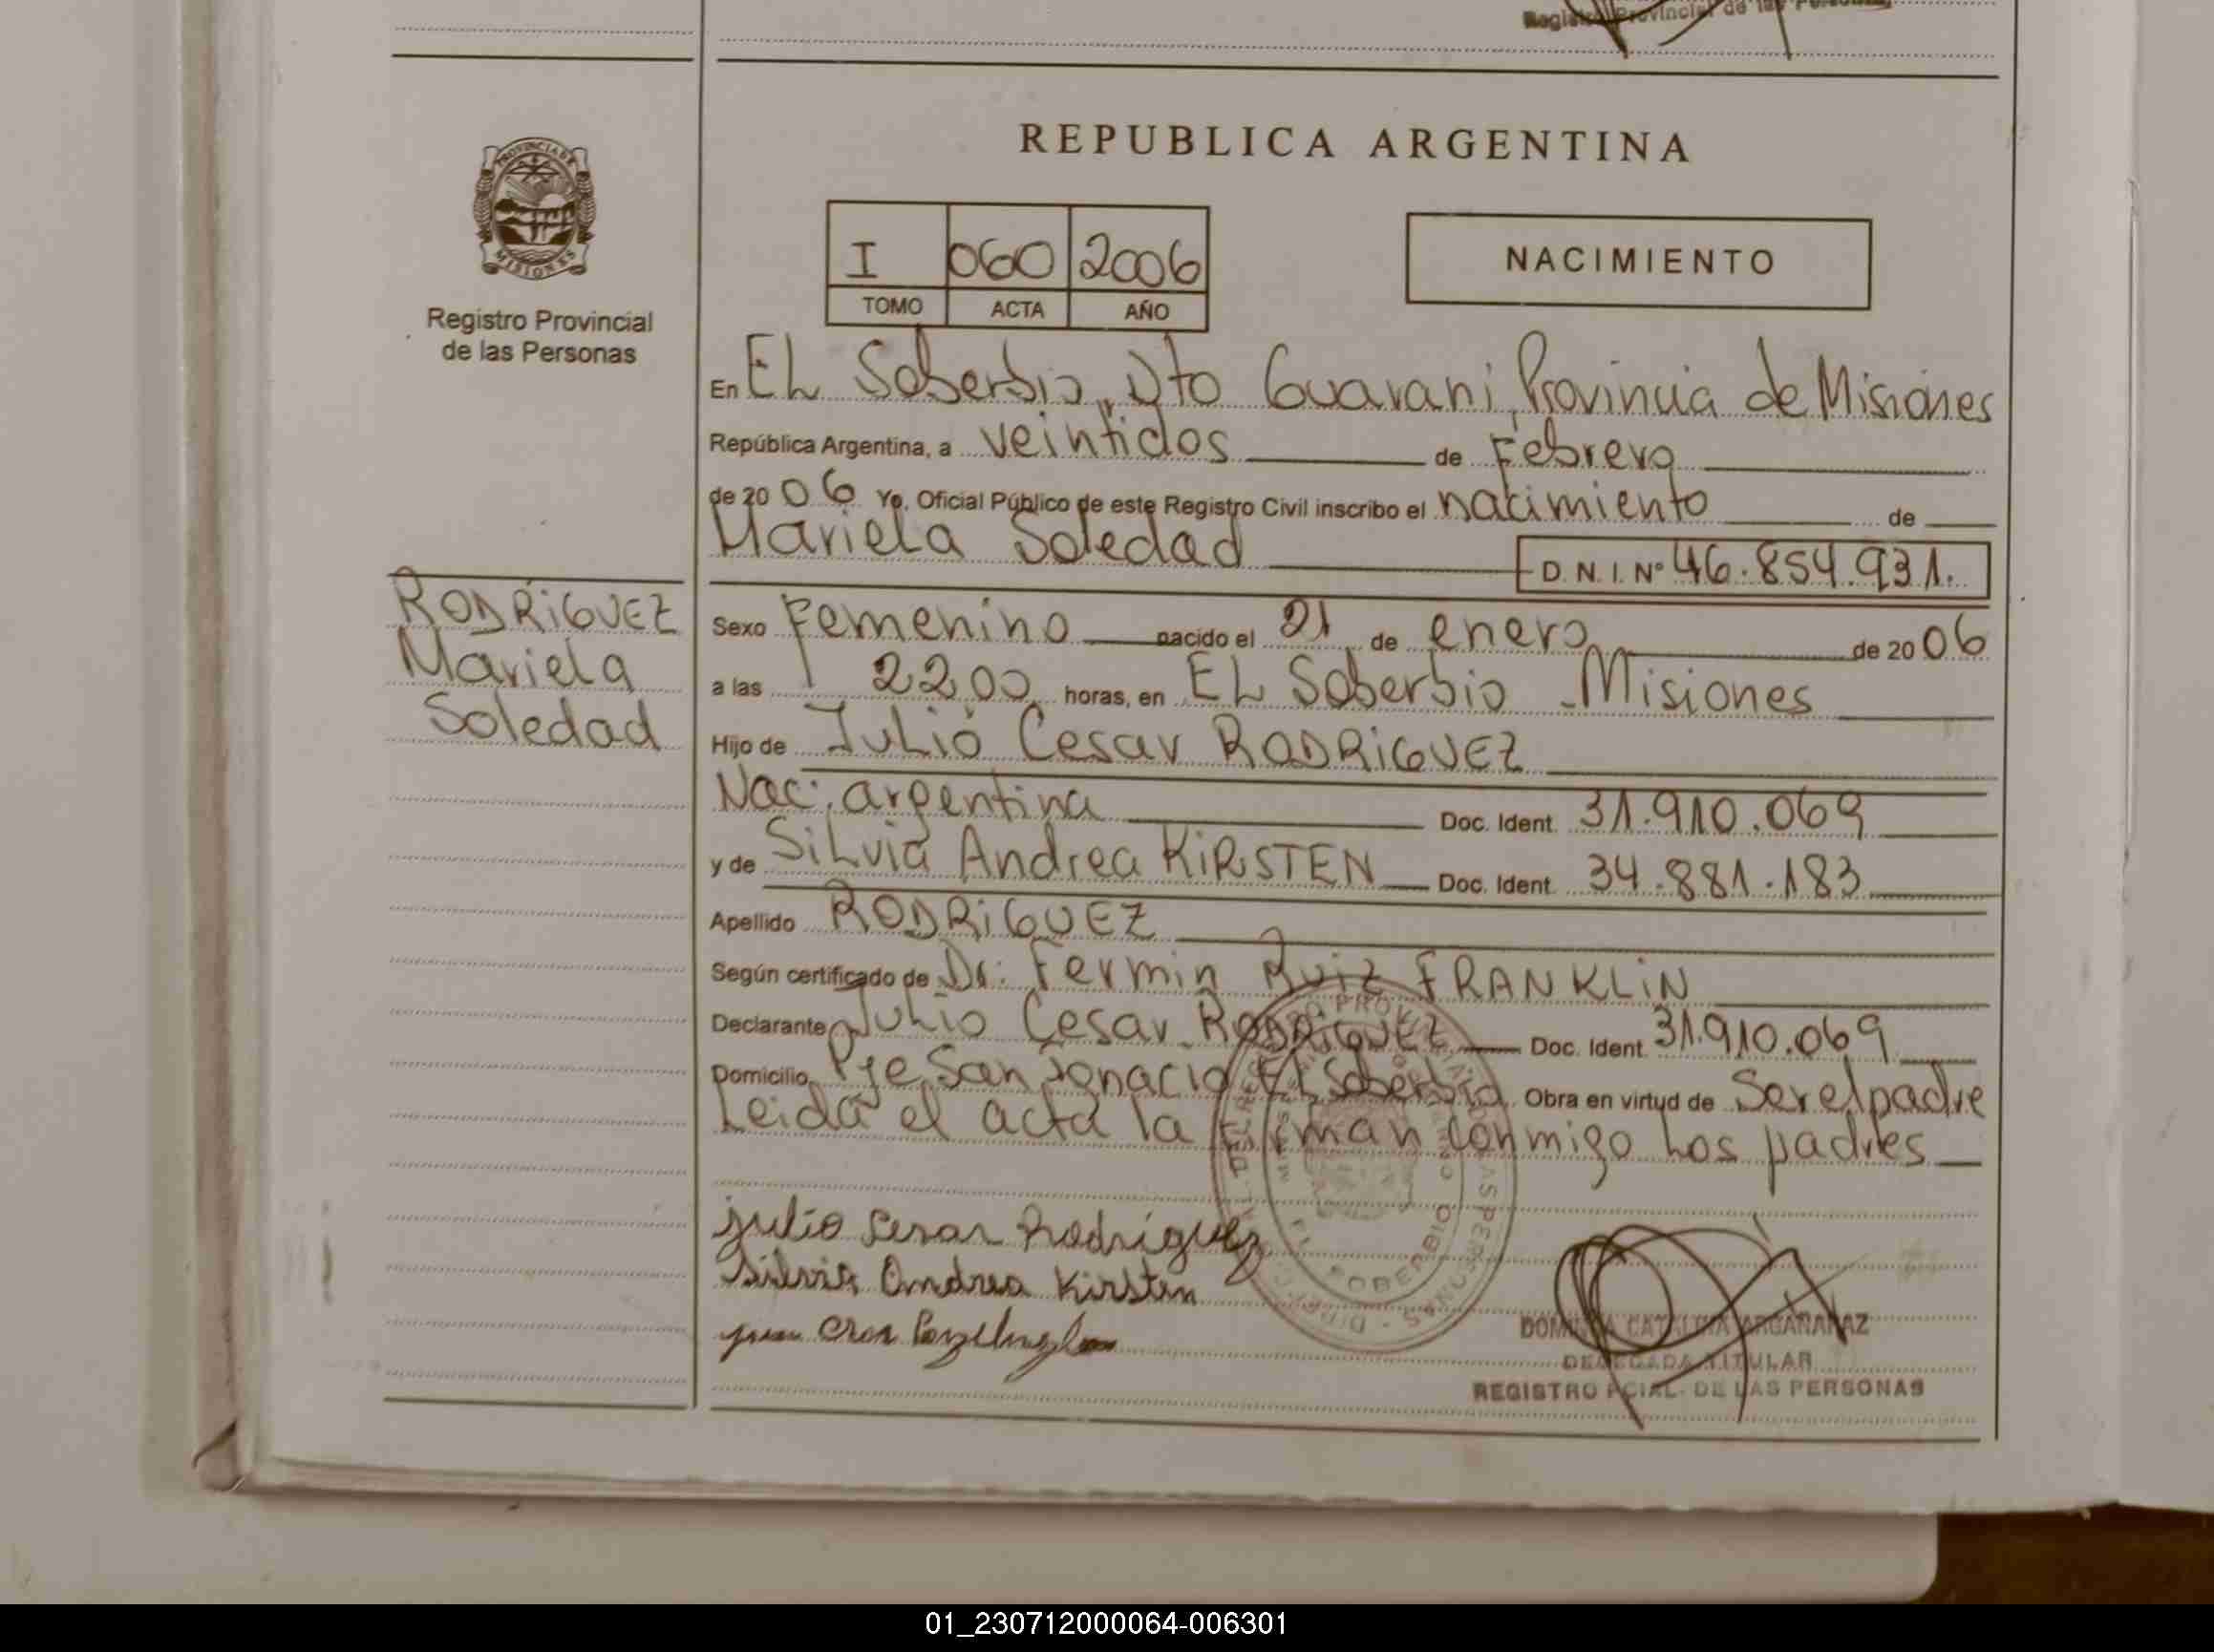 Registro Provincial de las Personas
REPUBLICA ARGENTINA
PROVINCIA DE
MISIONES
Registro Provincial
de las Personas
I 060 2006
TOMO ACTA AÑO
NACIMIENTO
En EL Soberbio, Dto Guaraní, Provincia de Misiones
República Argentina, a veintidos de Febrero
de 2006 Yo, Oficial Público de este Registro Civil inscribo el nacimiento de
Mariela Soledad D.N.I. Nº 46.854.931.
RODRÍGUEZ
Mariela
Soledad
Sexo Femenino nacido el 21 de enero de 2006
a las 22,00 horas, en EL Soberbio - Misiones
Hijo de Julio Cesar RODRIGUEZ
Nac: argentina Doc. Ident. 31.910.069
y de SiLvia Andrea KiRSTEN Doc. Ident. 34.881.183
Apellido RODRiGUEZ
Según certificado de Dr: Fermin Ruiz FRANKLiN
Declarante Julio Cesar RODRIGUEZ Doc. Ident. 31.910.069
Domicilio Pje San Ignacio El Soberbio Obra en virtud de Ser el padre
Leida el acta la firman conmigo Los padres
julio Cesar Rodriguez
Silvia Andrea Kirsten
EL SOBERBIO
DOMINGA CATALINA ARGAÑARAZ
DELEGADA TITULAR
REGISTRO PCIAL. DE LAS PERSONAS
01_230712000064-006301